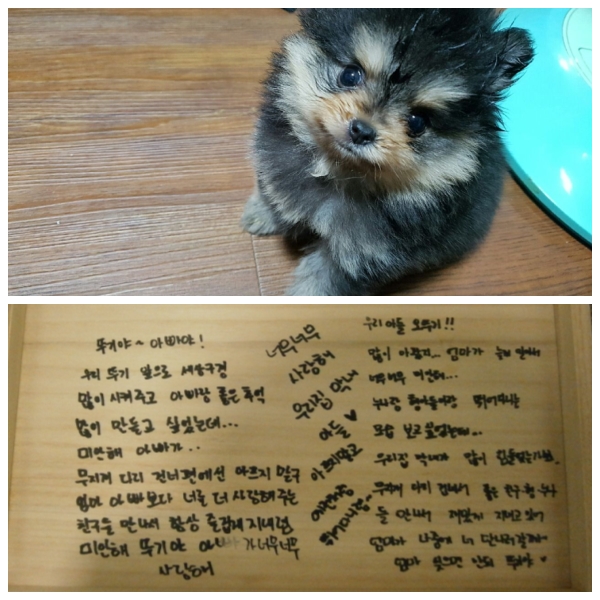 뚜기야~ 아빠야!
우리 뚜기 앞으로 세상구경
많이 시켜주고 아빠랑 좋은추억
많이 만들고 싶었는데...
미안해 아빠가..
무지개 다리 건너편에선 아프지 말구
엄마 아빠보다 너를 더 사랑해주는
친구들 만나서 항상 즐겁게 지내렴
미안해 뚜기야 아빠가 너무너무
사랑해
너무너무
사랑해
우리집 막내
아들 ♥
아프지말고
우리아들 오뚜기!!
많이 아팠지... 엄마가 늦게 알아서
너무너무 미안해...
누나랑 형아들이랑 뛰어노는
모습 보고싶었는데...
우리집 막내가 많이 힘들었는가봐.
무지개 다리 건너서 좋은 친구 형 누구
들 만나서 재밌게 지내고 있어
엄마가 나중에 너 만나러갈께~
엄마 잊으면 안되 뚜기야 ♥